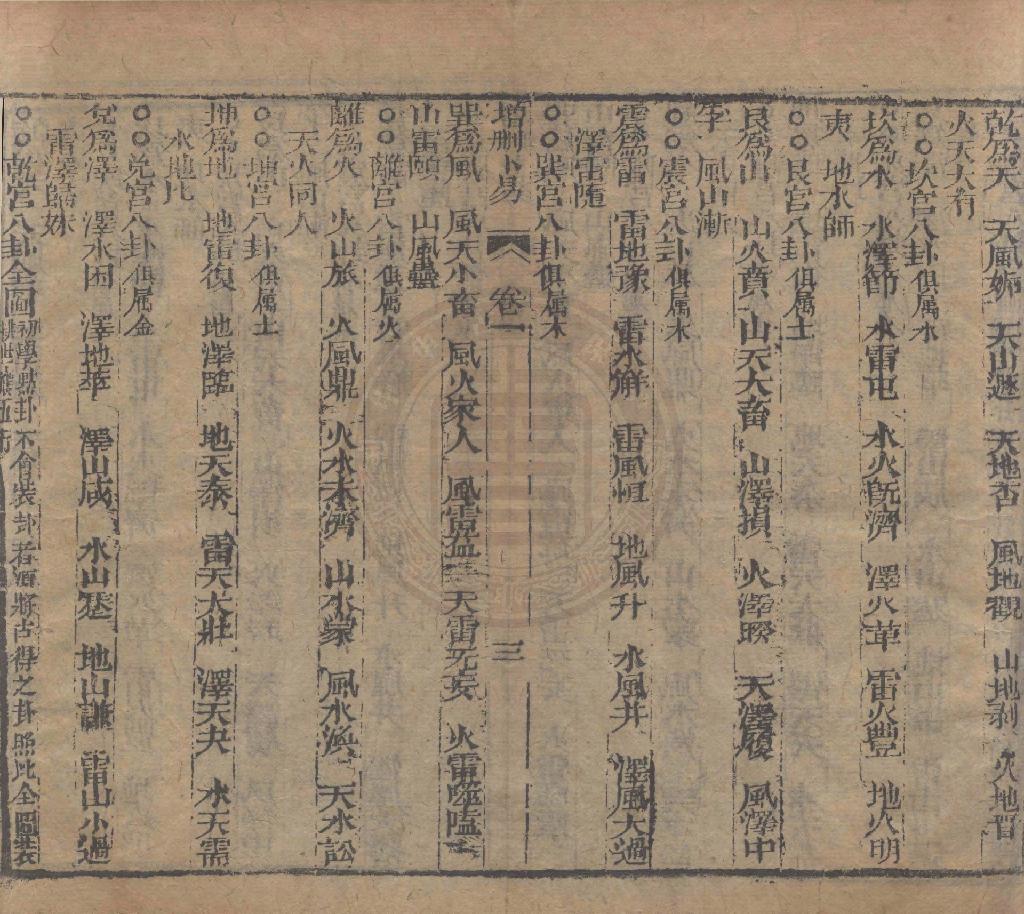 乾為天　天風姤　天山遯　天地否　風地觀　山地剝　火地晉
火天大有
○○坎宫八卦俱属水
坎為水　水澤節　水雷屯　水火旣濟　澤火革　雷火豐　地火明
夷　地水師
○○艮宫八卦俱属土
艮為山　山火賁　山天大畜　山澤損　火澤睽　天澤履　風澤中
孚　風山漸
○○震宫八卦俱属木
震為雷　雷地豫　雷水觧　雷風恒　地風升　水風井　澤風大過
澤雷隨
○○巽宫八卦俱属木
增删卜易　卷一　三
巽為風　風天小畜　風火家人　風雷益　天雷无妄　火雷噬嗑
山雷頤　山風蠱
○○離宫八卦俱属火
離為火　火山旅　火風鼎　火水未濟　山水蒙　風水渙　天水訟
天火同人
○○坤宫八卦俱属土
坤為地　地雷復　地澤臨　地天泰　雷天大莊　澤天夬　水天需
水地比
○○兑宫八卦俱属金
兌為澤　澤水困　澤地萃　澤山咸　水山蹇　地山謙　雷山小過
雷澤歸妹
○○乾宫八卦全圖　初學點卦不會裝卦者須將占得之卦照此全圖裝